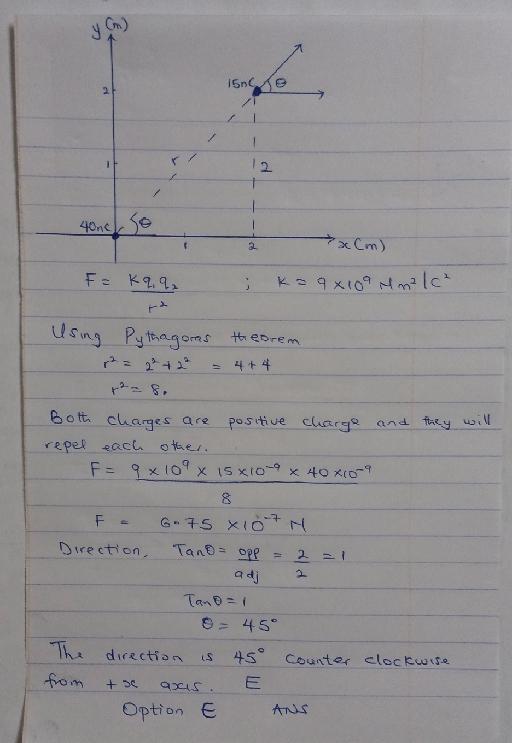 y (m)
15nC θ
2
r
1
2
40nC θ
1 2 x (m)
F = Kq₁q₂ ; K = 9 x 10⁹ Nm²/C²
r²
Using Pythagoras theorem
r² = 2² + 2² = 4 + 4
r² = 8.
Both charges are positive charge and they will
repel each other.
F = 9 x 10⁹ x 15 x 10⁻⁹ x 40 x 10⁻⁹
8
F = 6.75 x 10⁻⁷ N
Direction, Tanθ = opp = 2 = 1
adj 2
Tanθ = 1
θ = 45°
The direction is 45° counter clockwise
from +x axis. E
Option E ANS